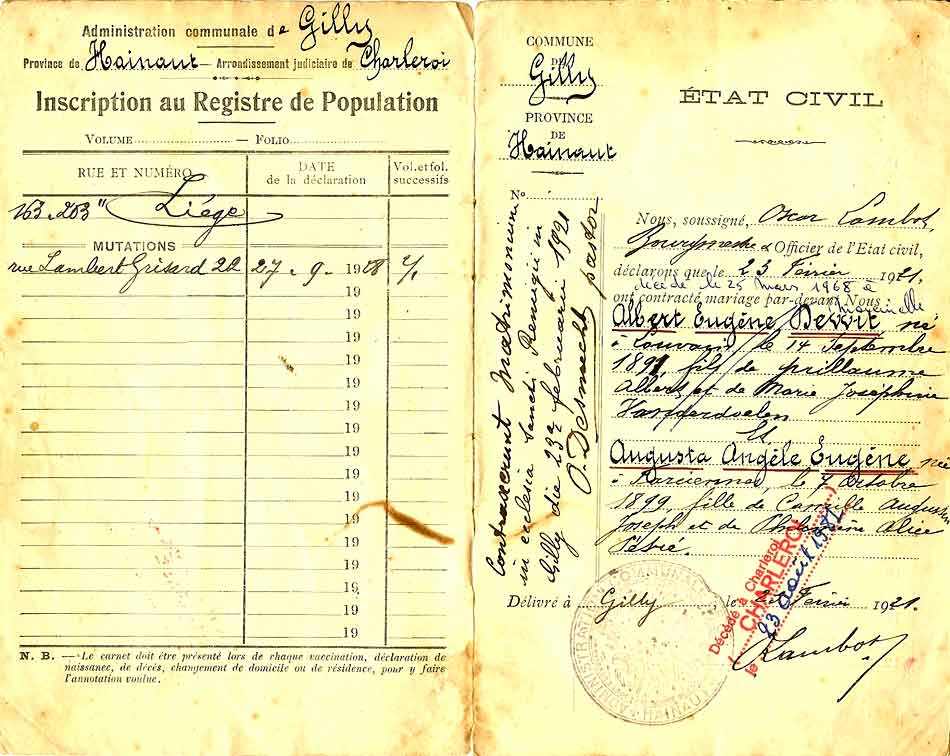 Administration communale de Gilly
Province de Hainaut — Arrondissement judiciaire de Charleroi
Inscription au Registre de Population
VOLUME — FOLIO
RUE ET NUMÉRO
DATE
de la déclaration
Vol. et fol.
successifs
Liége
MUTATIONS
rue Lambert Grisard 22 27 - 9 - 19
19
19
19
19
19
19
19
19
19
19
19
19
19
19
19
19
N. B. — Le carnet doit être présenté lors de chaque vaccination, déclaration de
naissance, de décès, changement de domicile ou de résidence, pour y faire
l'annotation voulue.
COMMUNE
DE
Gilly
PROVINCE
DE
Hainaut
No
Contraxerunt Matrimonium
in ecclesia Sancti Remigii in
Gilly die 23a februarii 1921
Desmecht pastor
ÉTAT CIVIL
Nous, soussigné, Oscar Lambot,
Bourgmestre Officier de l'Etat civil,
déclarons que le 23 Février 1921,
décédé le 25 mars 1968 à
ont contracté mariage par-devant Nous :
Marcinelle
Albert Eugène Dewit, né
à Louvain, le 14 Septembre
1891, fils de
Albert et de Marie Joséphine
Et
Augusta Angèle Eugène née
à Farciennes, le 7 Octobre
1899, fille de Camille Auguste
Joseph et de Alice
Délivré à Gilly le Février 1921.
Décédé à Charleroi
CHARLEROI
le 23 août
Lambot
COMMUNALE
HAINAUT